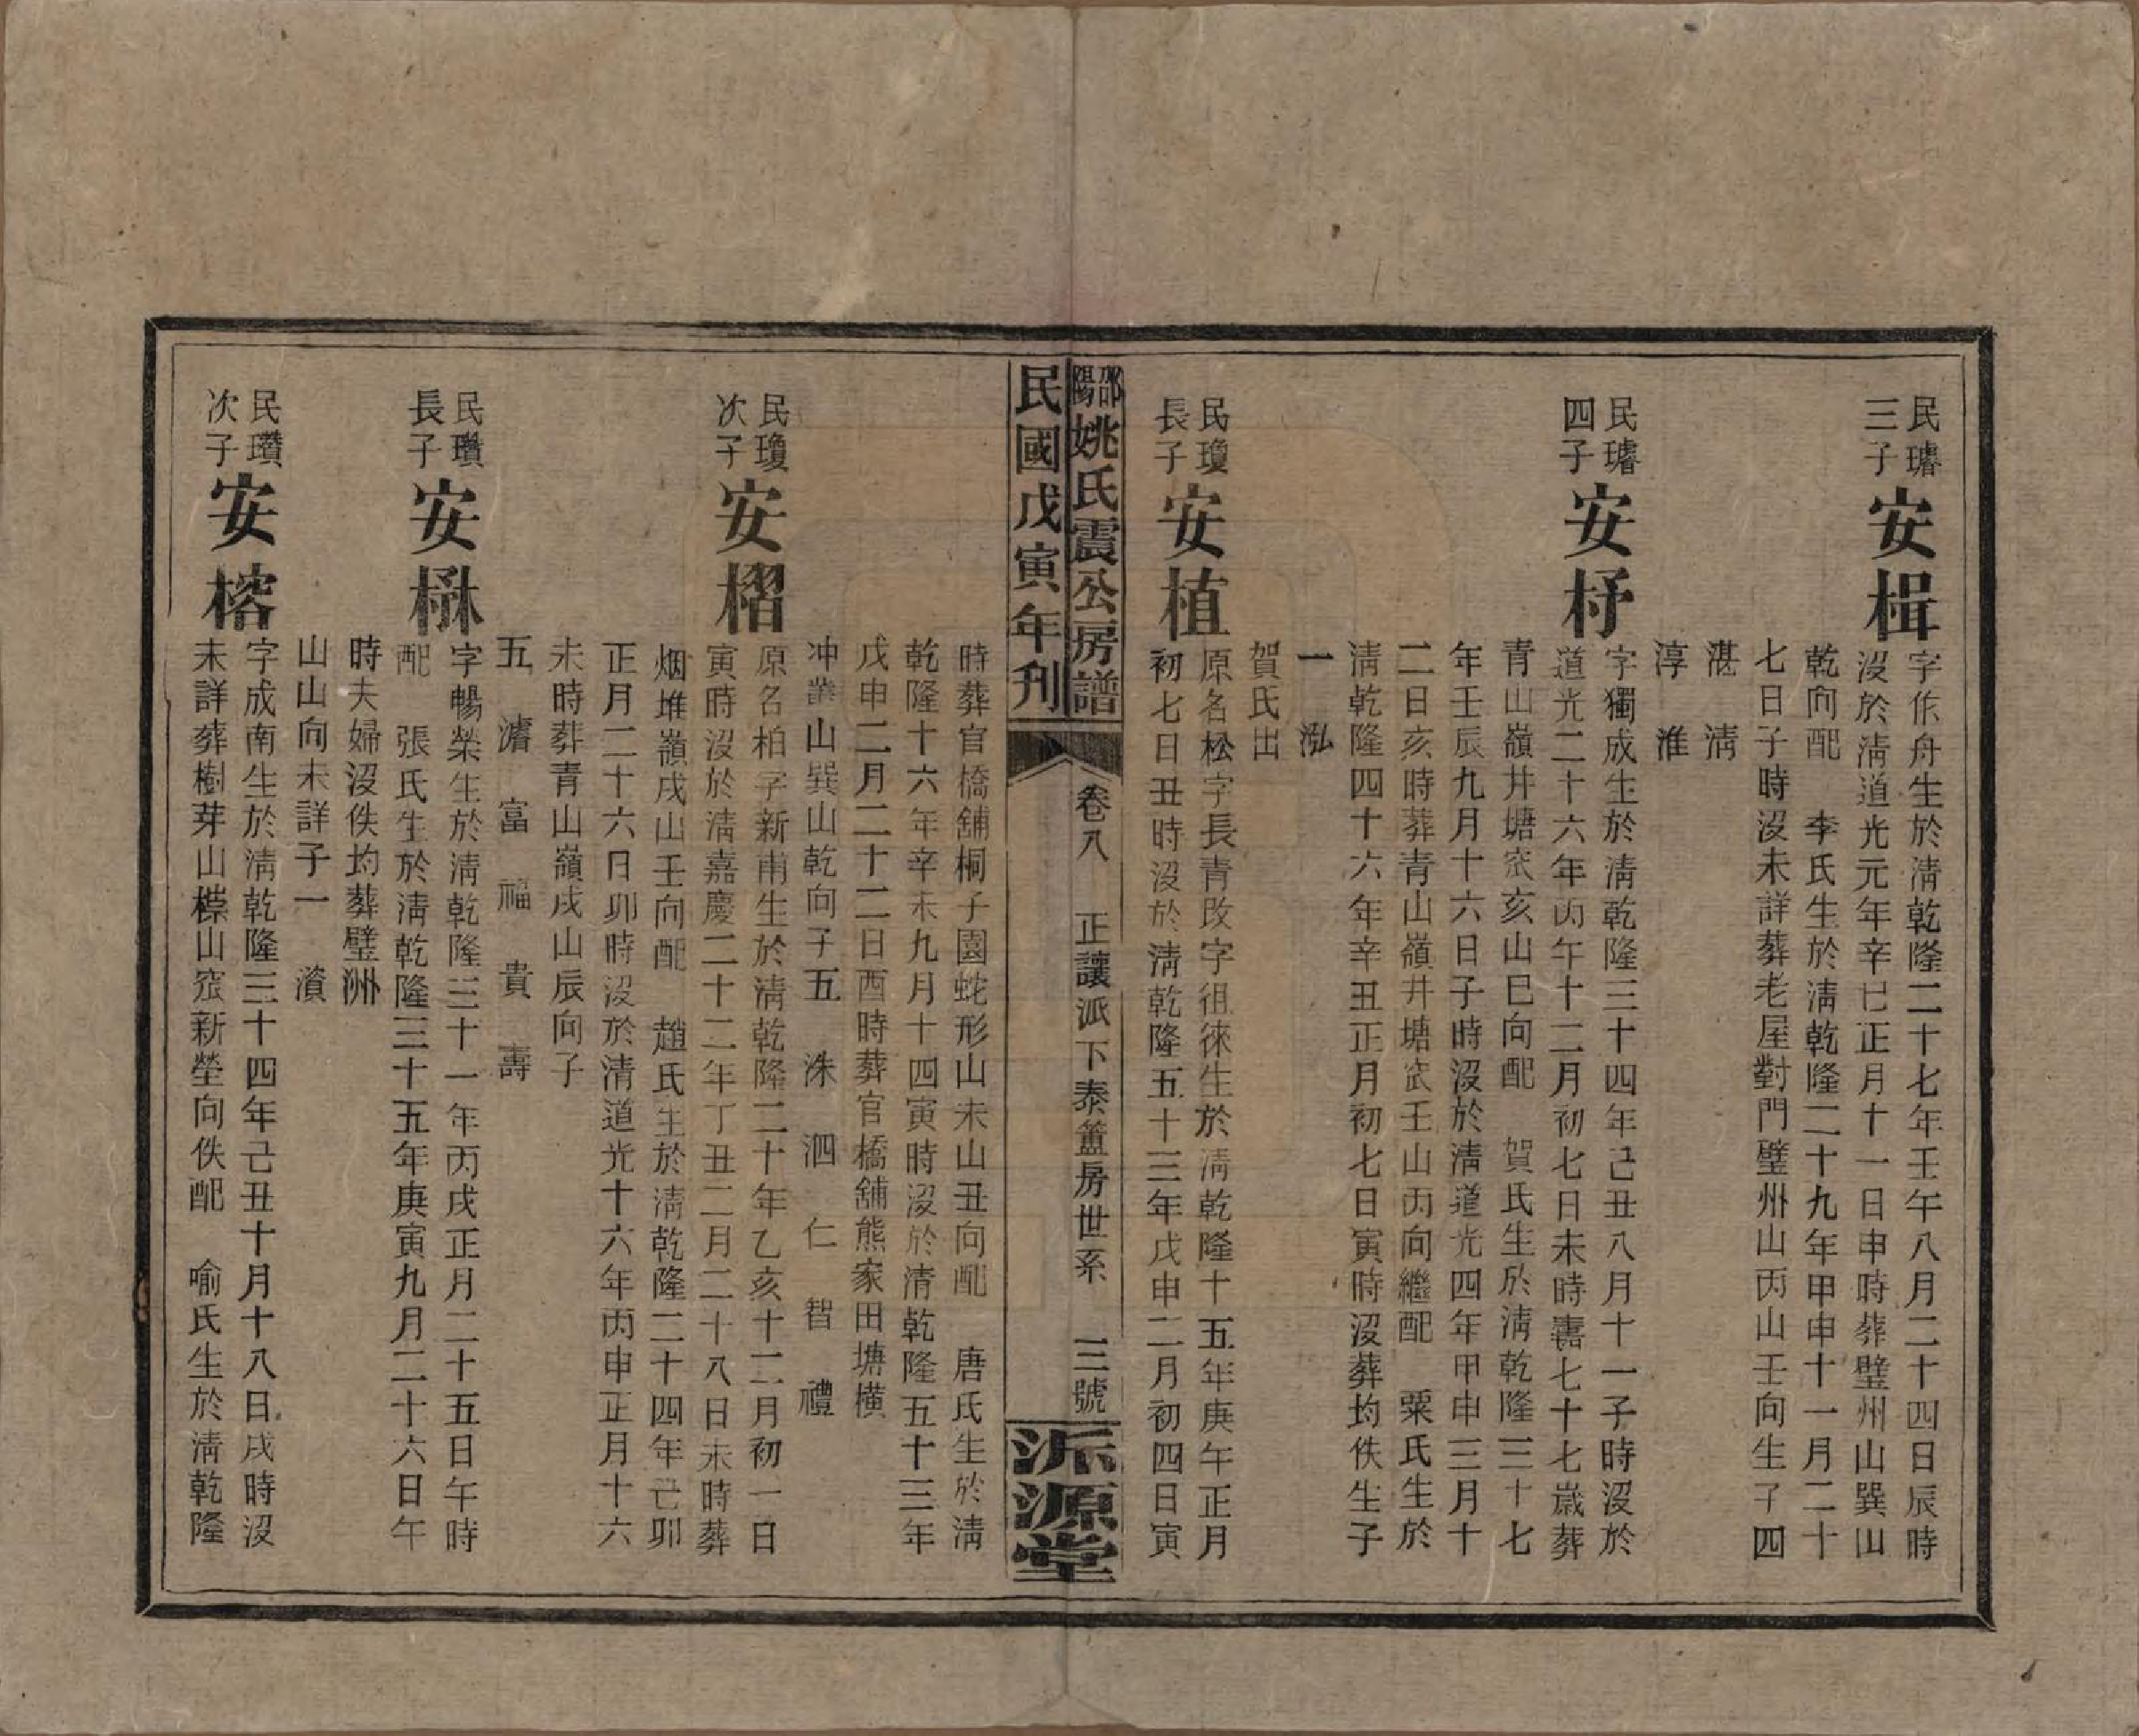 民璿
三子
安楫
字作舟生於清乾隆二十七年壬午八月二十四日辰時
沒於清道光元年辛巳正月十一日申時葬璧州山巽山
乾向配　李氏生於清乾隆二十九年甲申十一月二十
七日子時沒未詳葬老屋對門璧州山丙山壬向生子四
湛　清
淳　淮
民璿
四子
安杍
字獨成生於清乾隆三十四年己丑八月十一子時沒於
道光二十六年丙午十二月初七日未時壽七十七歲葬
青山嶺井塘㘭亥山巳向配　賀氏生於清乾隆三十七
年壬辰九月十六日子時沒於清道光四年甲申三月十
二日亥時葬青山嶺井塘㘭壬山丙向繼配　粟氏生於
清乾隆四十六年辛丑正月初七日寅時沒葬均佚生子
一　泓
賀氏出
民瓊
長子
安植
原名松字長青改字徂徠生於清乾隆十五年庚午正月
初七日丑時沒於清乾隆五十三年戊申二月初四日寅
邵陽姚氏震公房譜
卷八　正讓派下泰簠房世系　三號
民國戊寅年刋
派源堂
時葬官橋舖桐子園蛇形山未山丑向配　唐氏生於清
乾隆十六年辛未九月十四寅時沒於清乾隆五十三年
戊申二月二十二日酉時葬官橋舖熊家田塘橫
冲叢山巽山乾向子五　洙　泗　仁　智　禮
民瓊
次子
安榴
原名柏字新甫生於清乾隆二十年乙亥十二月初一日
寅時沒於清嘉慶二十二年丁丑二月二十八日未時葬
烟堆嶺戌山壬向配　趙氏生於清乾隆二十四年己卯
正月二十六日卯時沒於清道光十六年丙申正月十六
未時葬青山嶺戌山辰向子
五　濬　富　福　貴　壽
民瓚
長子
安楙
字暢榮生於清乾隆三十一年丙戌正月二十五日午時
配　張氏生於清乾隆三十五年庚寅九月二十六日午
時夫婦沒佚均葬璧洲
山山向未詳子一　濱
民瓚
次子
安榕
字成南生於清乾隆三十四年己丑十月十八日戌時沒
未詳葬樹芽山檪山窊新塋向佚配　喻氏生於清乾隆